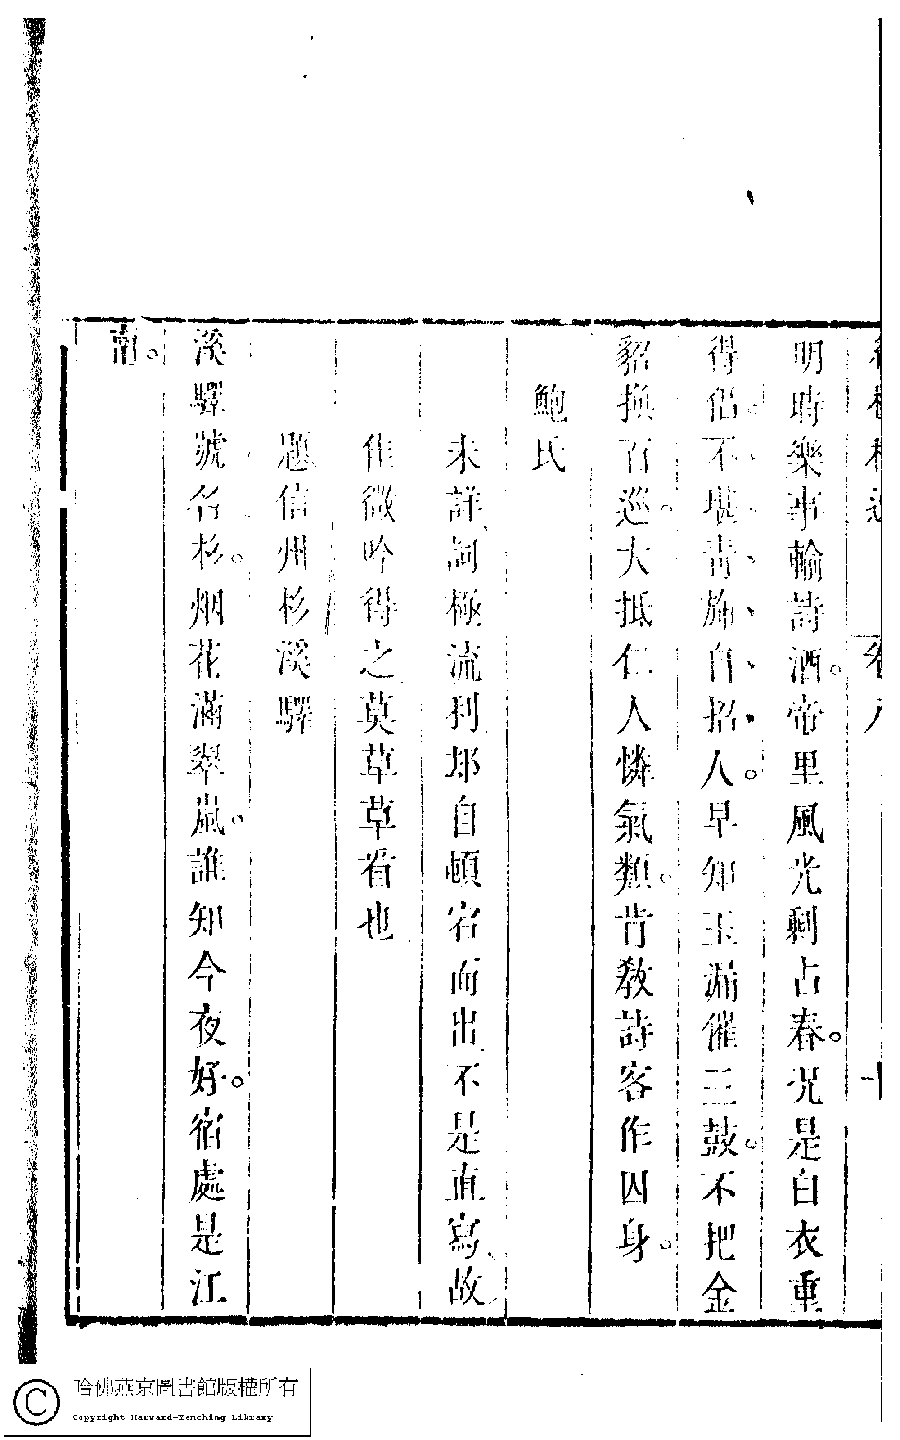 卷八
十
明時樂事輸詩酒。帝里風光剩占春。况是白衣重
得侶。不堪靑旆自招人。早知玉漏催三鼓。不把金
貂換百巡。大抵仁人憐氣類。肯敎詩客作囚身。
鮑氏
未詳詞極流利却自頓宕而出不是直寫、故
佳微吟得之莫草草看也
題信州杉溪驛
溪驛號名杉。烟花滿翠嵐。誰知今夜好。宿處是江
南。
哈佛燕京圖書館版權所有
Copyright Harvard-Yenching Library